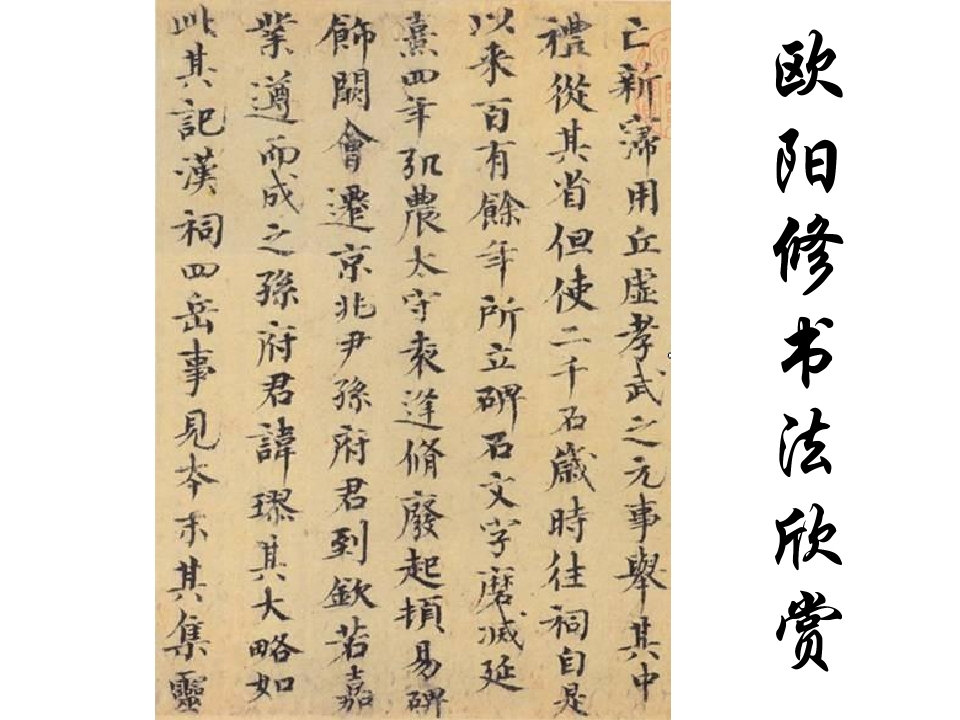 欧阳修书法欣赏
亡新寖用丘虛孝武之元事舉其中
禮從其省但使二千石歲時往祠自是
以来百有餘年所立碑石文字磨滅延
熹四年弘農太守袁逢脩廢起頓易碑
飾闕會遷京兆尹孫府君到欽若嘉
業遵而成之孫府君諱璆其大略如
此其記漢祠四岳事見本末其集靈